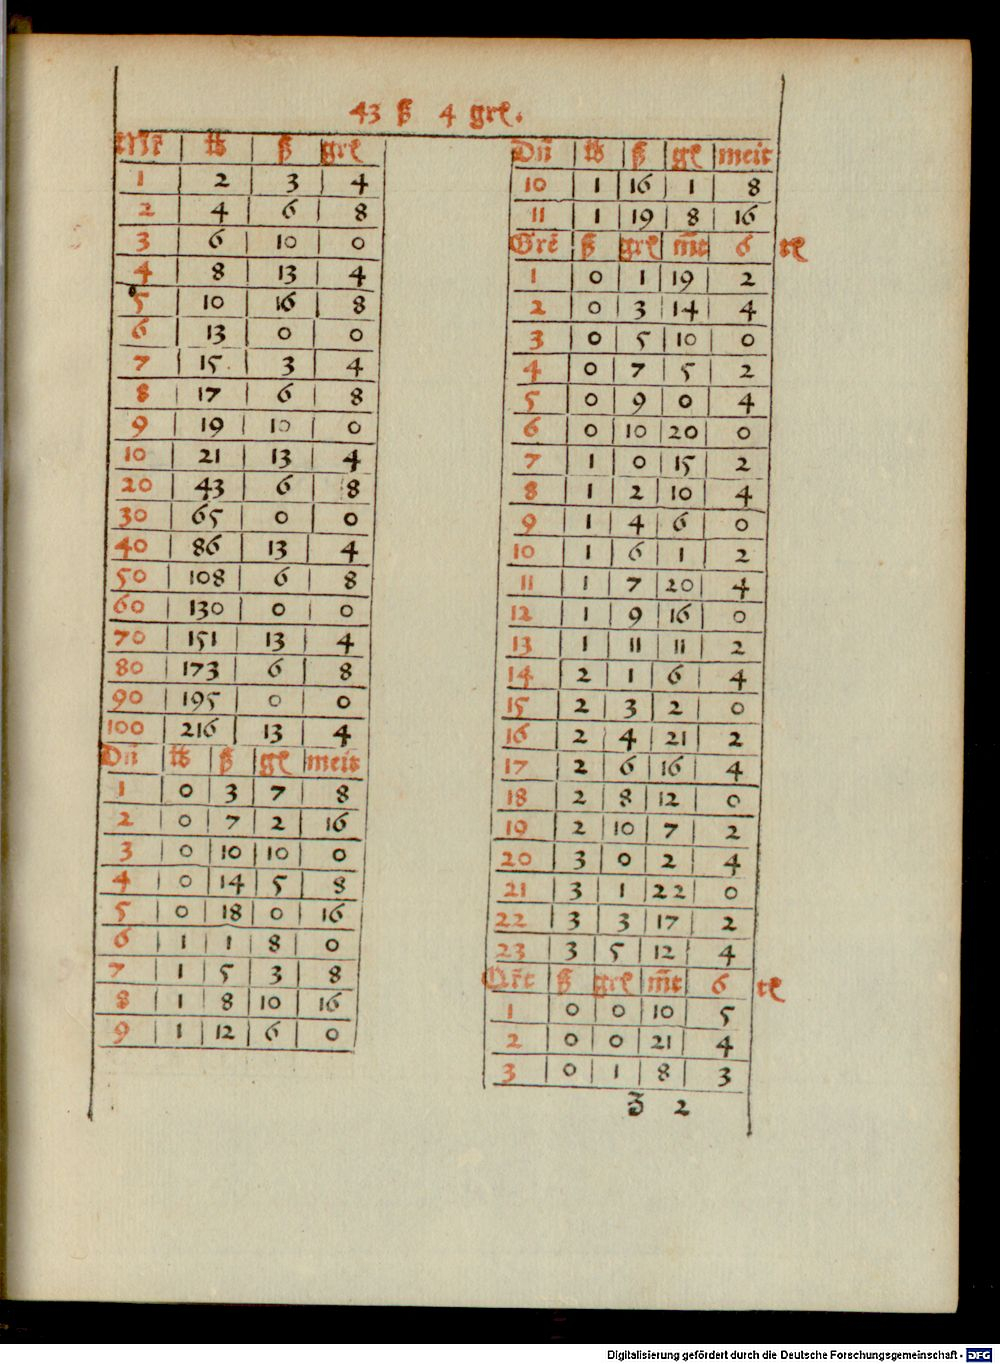 43 ß 4 gre.
Mr̄c ℔ ß gre
1 2 3 4
2 4 6 8
3 6 10 0
4 8 13 4
5 10 16 8
6 13 0 0
7 15 3 4
8 17 6 8
9 19 10 0
10 21 13 4
20 43 6 8
30 65 0 0
40 86 13 4
50 108 6 8
60 130 0 0
70 151 13 4
80 173 6 8
90 195 0 0
100 216 13 4
Dn̄ ℔ ß ge meit
1 0 3 7 8
2 0 7 2 16
3 0 10 10 0
4 0 14 5 8
5 0 18 0 16
6 1 1 8 0
7 1 5 3 8
8 1 8 10 16
9 1 12 6 0
Dn̄ ℔ ß ge meit
10 1 16 1 8
11 1 19 8 16
Grē ß gre m̄t 6 te
1 0 1 19 2
2 0 3 14 4
3 0 5 10 0
4 0 7 5 2
5 0 9 0 4
6 0 10 20 0
7 1 0 15 2
8 1 2 10 4
9 1 4 6 0
10 1 6 1 2
11 1 7 20 4
12 1 9 16 0
13 1 11 11 2
14 2 1 6 4
15 2 3 2 0
16 2 4 21 2
17 2 6 16 4
18 2 8 12 0
19 2 10 7 2
20 3 0 2 4
21 3 1 22 0
22 3 3 17 2
23 3 5 12 4
Qr̄t ß gre m̄t 6 te
1 0 0 10 5
2 0 0 21 4
3 0 1 8 3
2
Digitalisierung gefördert durch die Deutsche Forschungsgemeinschaft - DFG